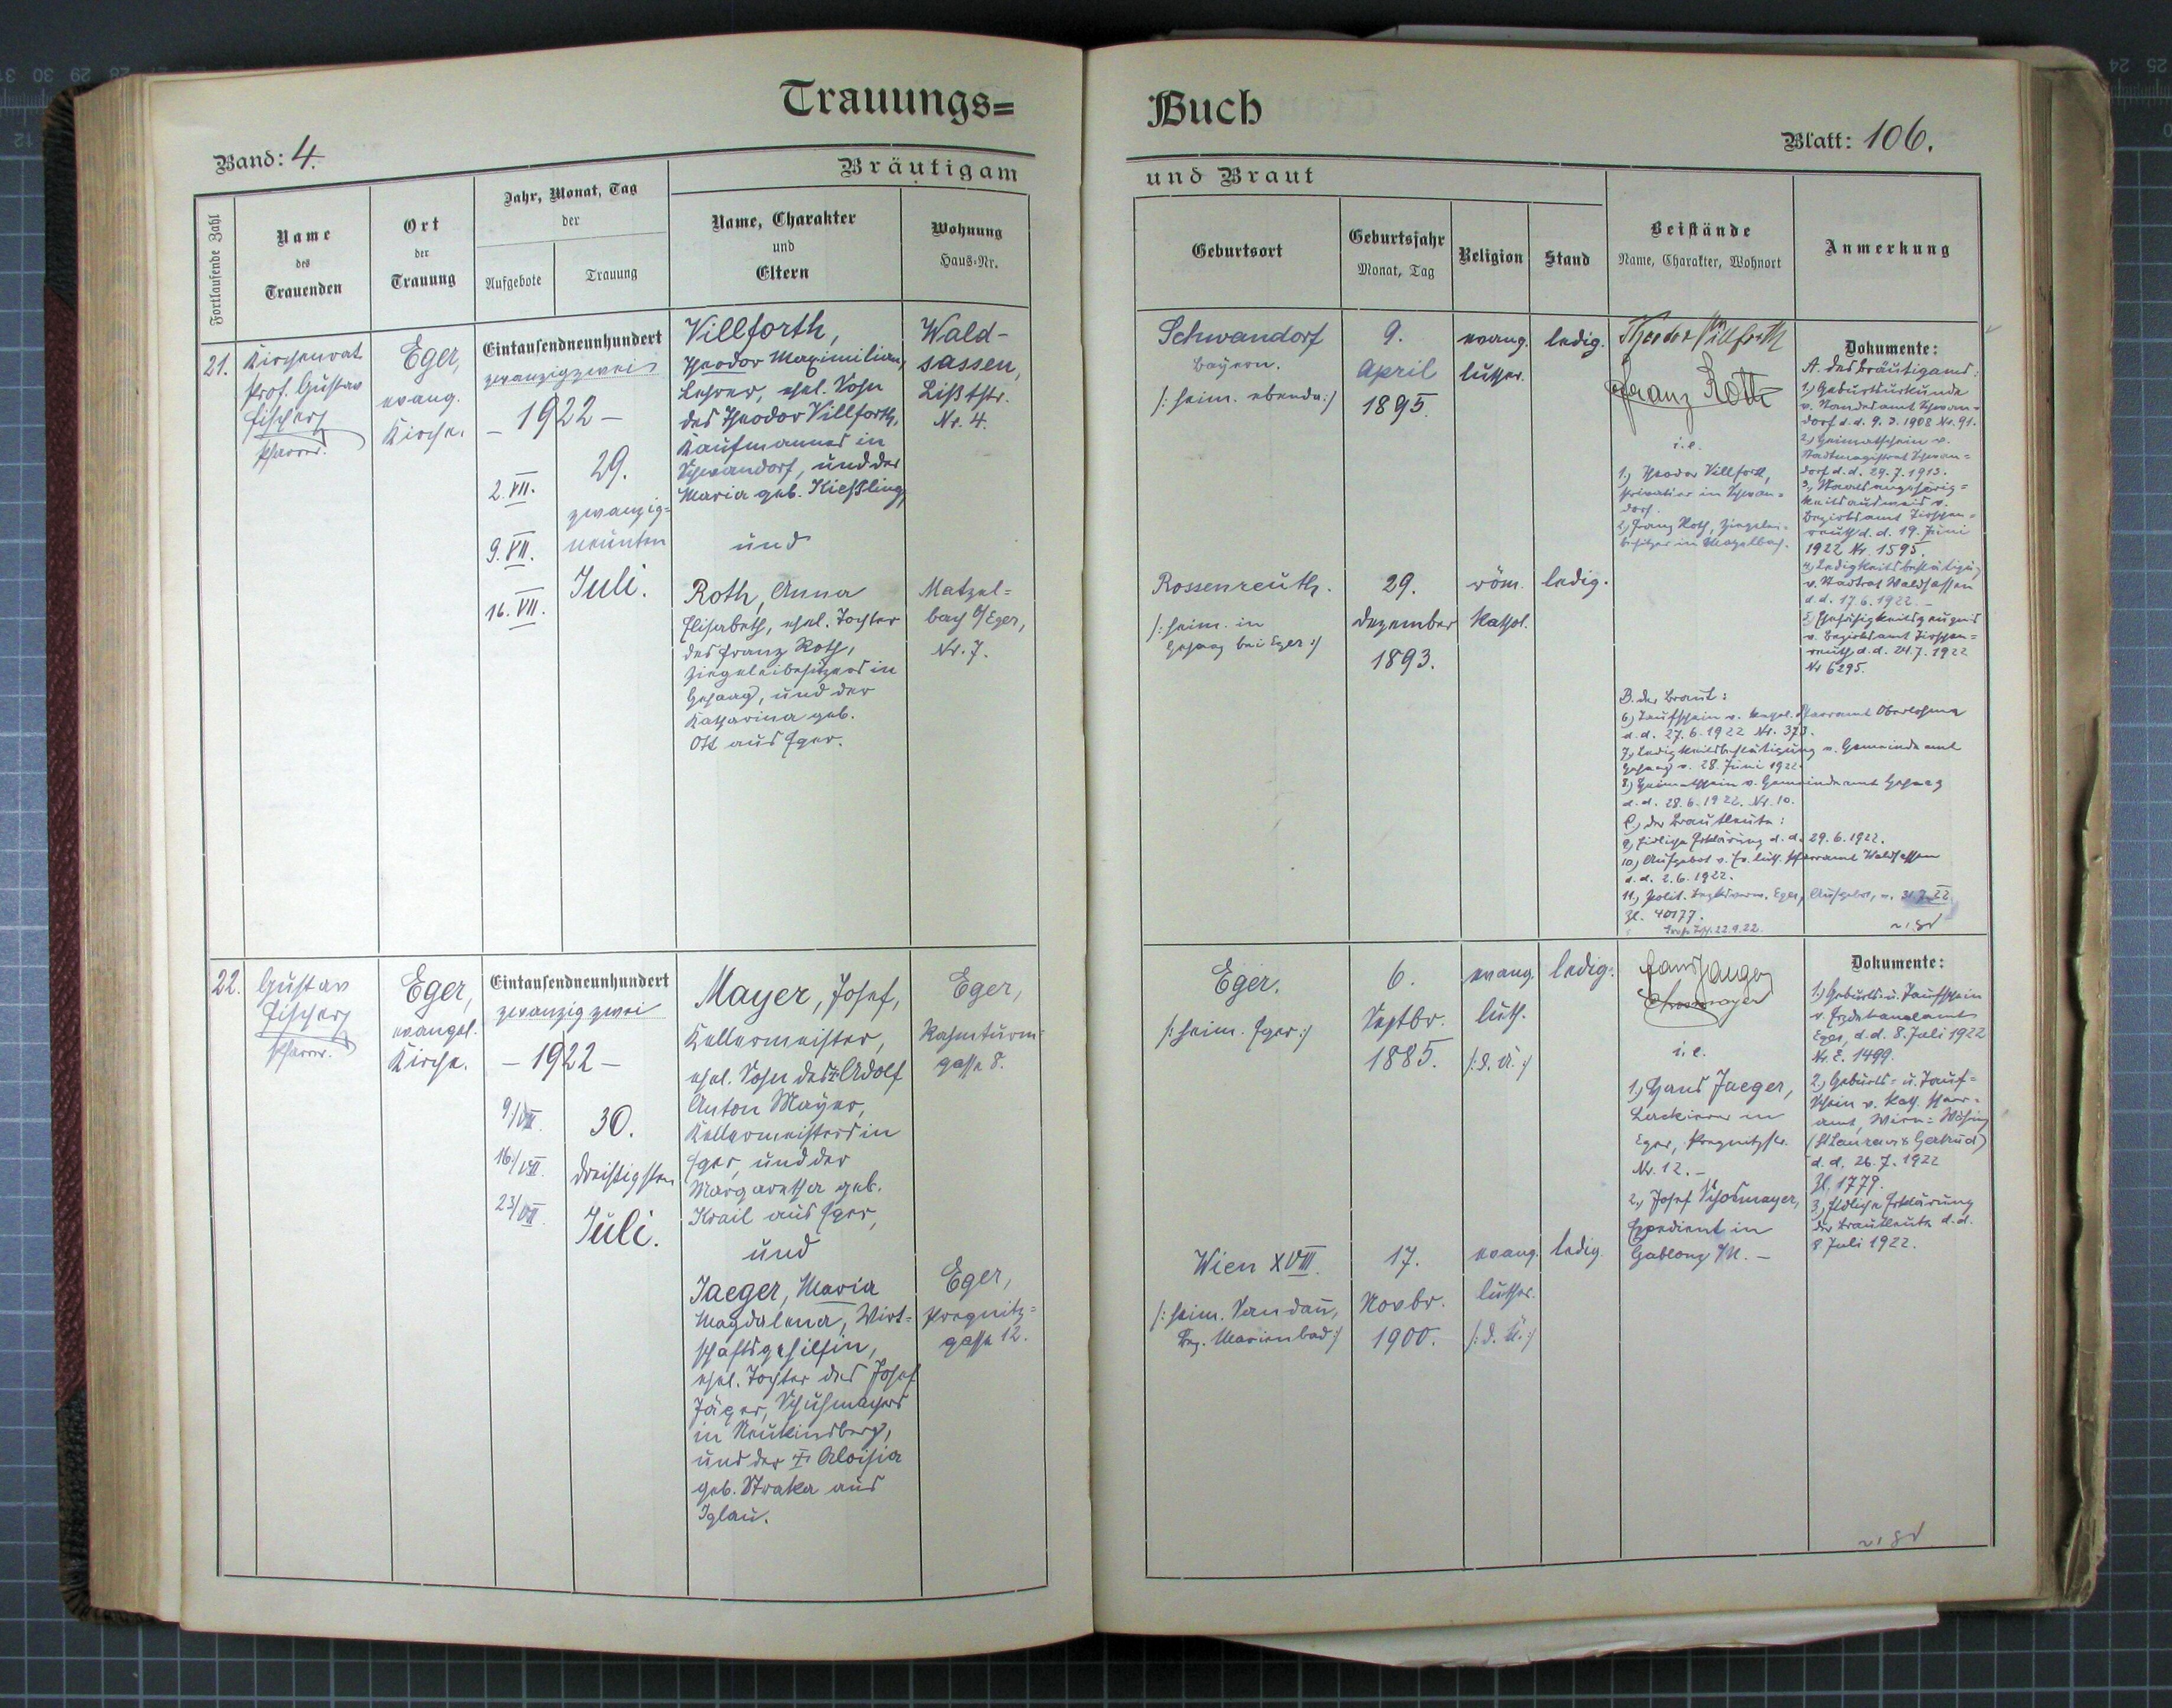 Trauungs=
Buch
Band: 4.
Blatt: 106.
Bräutigam
und Braut
Fortlaufende Zahl
Name
des
Trauenden
Ort
der
Trauung
Jahr, Monat, Tag
der
Aufgebote
Trauung
Name, Charakter
und
Eltern
Wohnung
Haus-Nr.
Geburtsort
Geburtsjahr
Monat, Tag
Religion
Stand
Beistände
Name, Charakter, Wohnort
Anmerkung
21.
Kirchenrat
Prof. Gustav
Fischer
Pfarrer.
Eger,
evang.
Kirche.
Eintausendneunhundert
zwanzigzwei
– 1922 –
2. VII.
9. VII.
16. VII.
29.
zwanzig=
neunten
Juli.
Villforth,
Theodor Maximilian,
Lehrer, ehel. Sohn
des Theodor Villforth,
Kaufmannes in
Schwandorf, und der
Maria geb. Kießling,
und
Roth, Anna
Elisabeth, ehel. Tochter
des Franz Roth,
Ziegeleibesitzers in
Gehaag, und der
Katharina geb.
Ott aus Eger.
Wald-
sassen,
Lißtstr.
Nr. 4.
Matzel=
bach b/Eger,
Nr. 7.
Schwandorf
Bayern.
/: heim. ebenda :/
9.
April
1895.
evang.
luther.
ledig.
Rossenreuth.
/: heim. in
Gehaag bei Eger :/
29.
Dezember
1893.
röm.
kathol.
ledig.
Theodor Villforth
Franz Roth
i. e.
1.) Theodor Villforth,
Privatier in Schwan=
dorf.
2.) Franz Roth, Ziegelei=
besitzer in Matzelbach.
Dokumente:
A. des Bräutigams:
1.) Geburtsurkunde
v. Standesamt Schwan=
dorf d. d. 9. 3. 1908 Nr. 91.
2.) Heimatschein v.
Stadtmagistrat Schwan=
dorf d. d. 29. 7. 1913.
3.) Staatsangehörig=
keitsausweis v.
Bezirksamt Tirschen=
reuth d. d. 19. Juni
1922 Nr. 1595.
4.) Ledigkeitsbestätigung
v. Stadtrat Waldsassen
d. d. 17. 6. 1922. –
5.) Ehefähigkeitszeugnis
v. Bezirksamt Tirschen=
reuth d. d. 24. 7. 1922
Nr 6295.
B. der Braut:
6.) Taufschein v. kathol. Pfarramt Oberlohma
d. d. 27. 6. 1922 Nr. 373.
7.) Ledigkeitsbestätigung v. Gemeindeamt
Gehaag v. 28. Juni 1922.
8.) Heimatschein v. Gemeindeamt Gehaag
d. d. 28. 6. 1922. Nr. 10.
C.) der Brautleute:
9.) Eidliche Erklärung d. d. 29. 6. 1922.
10.) Aufgebot v. Ev. luth. Pfarramt Waldsassen
d. d. 2. 6. 1922.
11.) Polit. Bezksverw. Eger, Aufgebot, v.
Zl. 40177.
22.9.22.
22.
Gustav
Fischer
Pfarrer.
Eger,
evangel.
Kirche.
Eintausendneunhundert
zwanzigzwei
– 1922 –
9./VII.
16./VII.
23/VII.
30.
dreißigsten
Juli.
Mayer, Josef,
Kellermeister,
ehel. Sohn des † Adolf
Anton Mayer,
Kellermeisters in
Eger, und der
Margaretha geb.
Krail aus Eger,
und
Jaeger, Maria
Magdalena, Wirt=
schaftsgehilfin,
ehel. Tochter des Josef
Jäger, Schuhmachers
in Neukinsberg,
und der † Aloisia
geb. Straka aus
Iglau.
Eger,
Rahmturm=
gasse 8.
Eger,
Pregnitz=
gasse 12.
Eger.
/: heim. Eger :/
6.
Septbr.
1885.
evang.
luth.
/: d. Ü. :/
ledig.
Wien XVIII.
/: heim. Sandau,
Bez. Marienbad :/
17.
Novbr.
1900.
evang.
luther.
/: d. Ü. :/
ledig.
Hans Jaeger
i. e.
1.) Hans Jaeger,
Lackierer in
Eger, Pregnitzstr.
Nr. 12. –
2.) Josef Schosmayer,
Expedient in
Gablonz /N. –
Dokumente:
1.) Geburts- u. Taufschein
v. Erzdekanalamt
Eger, d. d. 8. Juli 1922
Nr. E. 1499.
2.) Geburts- u. Tauf=
schein v. kath. Pfarr=
amt, Wien=Währing
(St Laurenz & Gertrud)
d. d. 26. 7. 1922
Zl. 1779.
3.) Eidliche Erklärung
der Brautleute d. d.
8. Juli 1922.